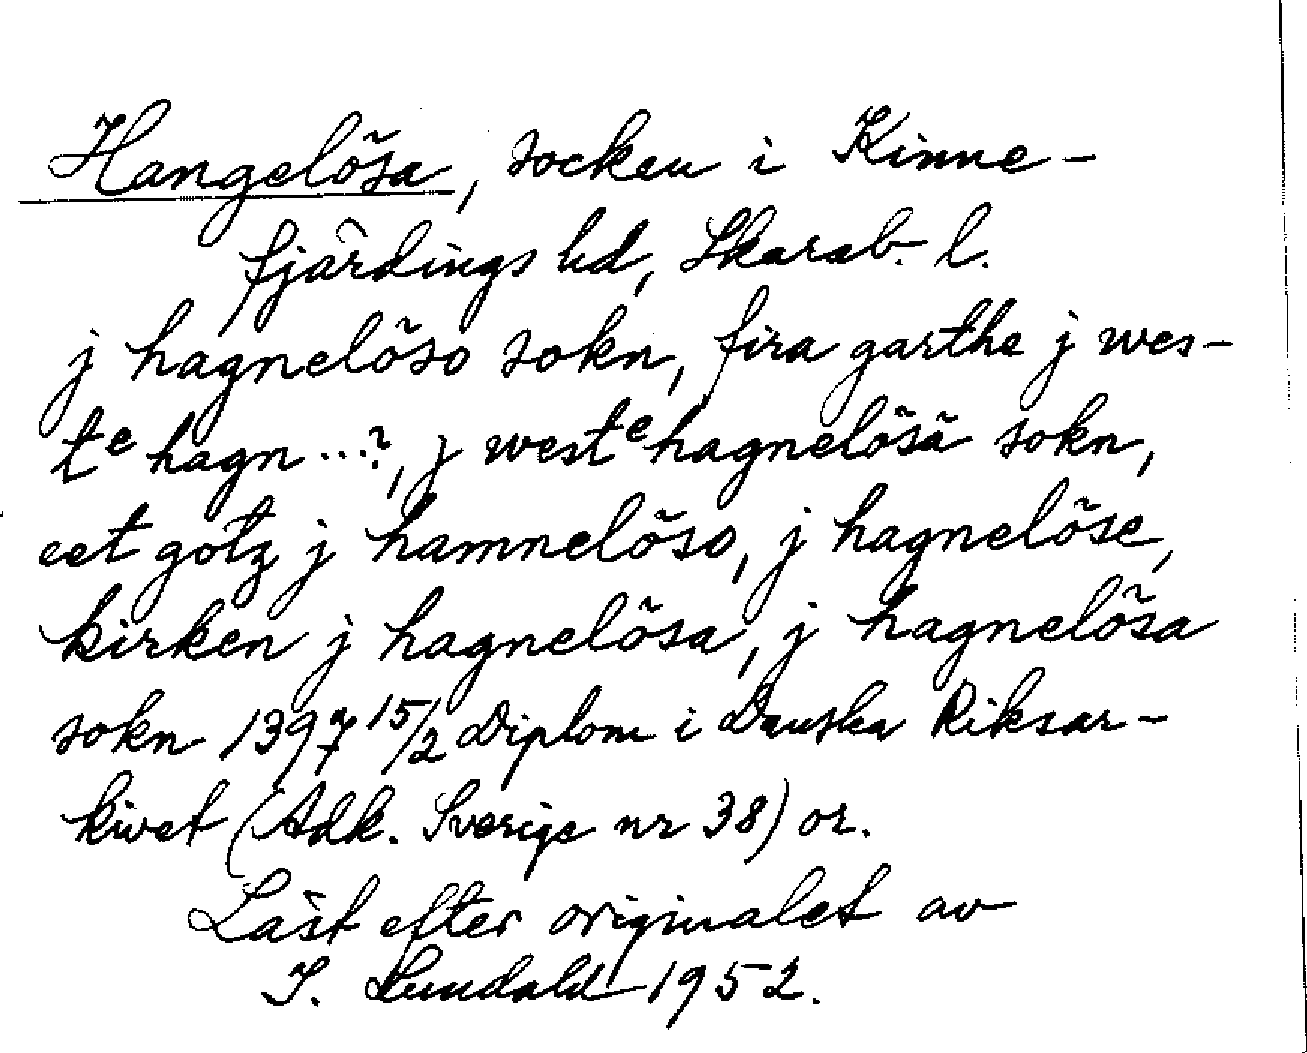 Hangelösa, socken i Kinne-
fjärdings hd, Skarab. l.
j hagneløso sokn, fira garthe j wes-
tᵉ hagn...?, j westᵉ hagneløsä sokn,
eet gotz j hamneløso, j hagneløse,
kirken j hagneløsa, j hagneløsa
sokn 1397 15/2 Diplom i Danska Riksar-
kivet (Adk. Sverige nr 38) or.
Läst efter originalet av
I. Lundahl 1952.